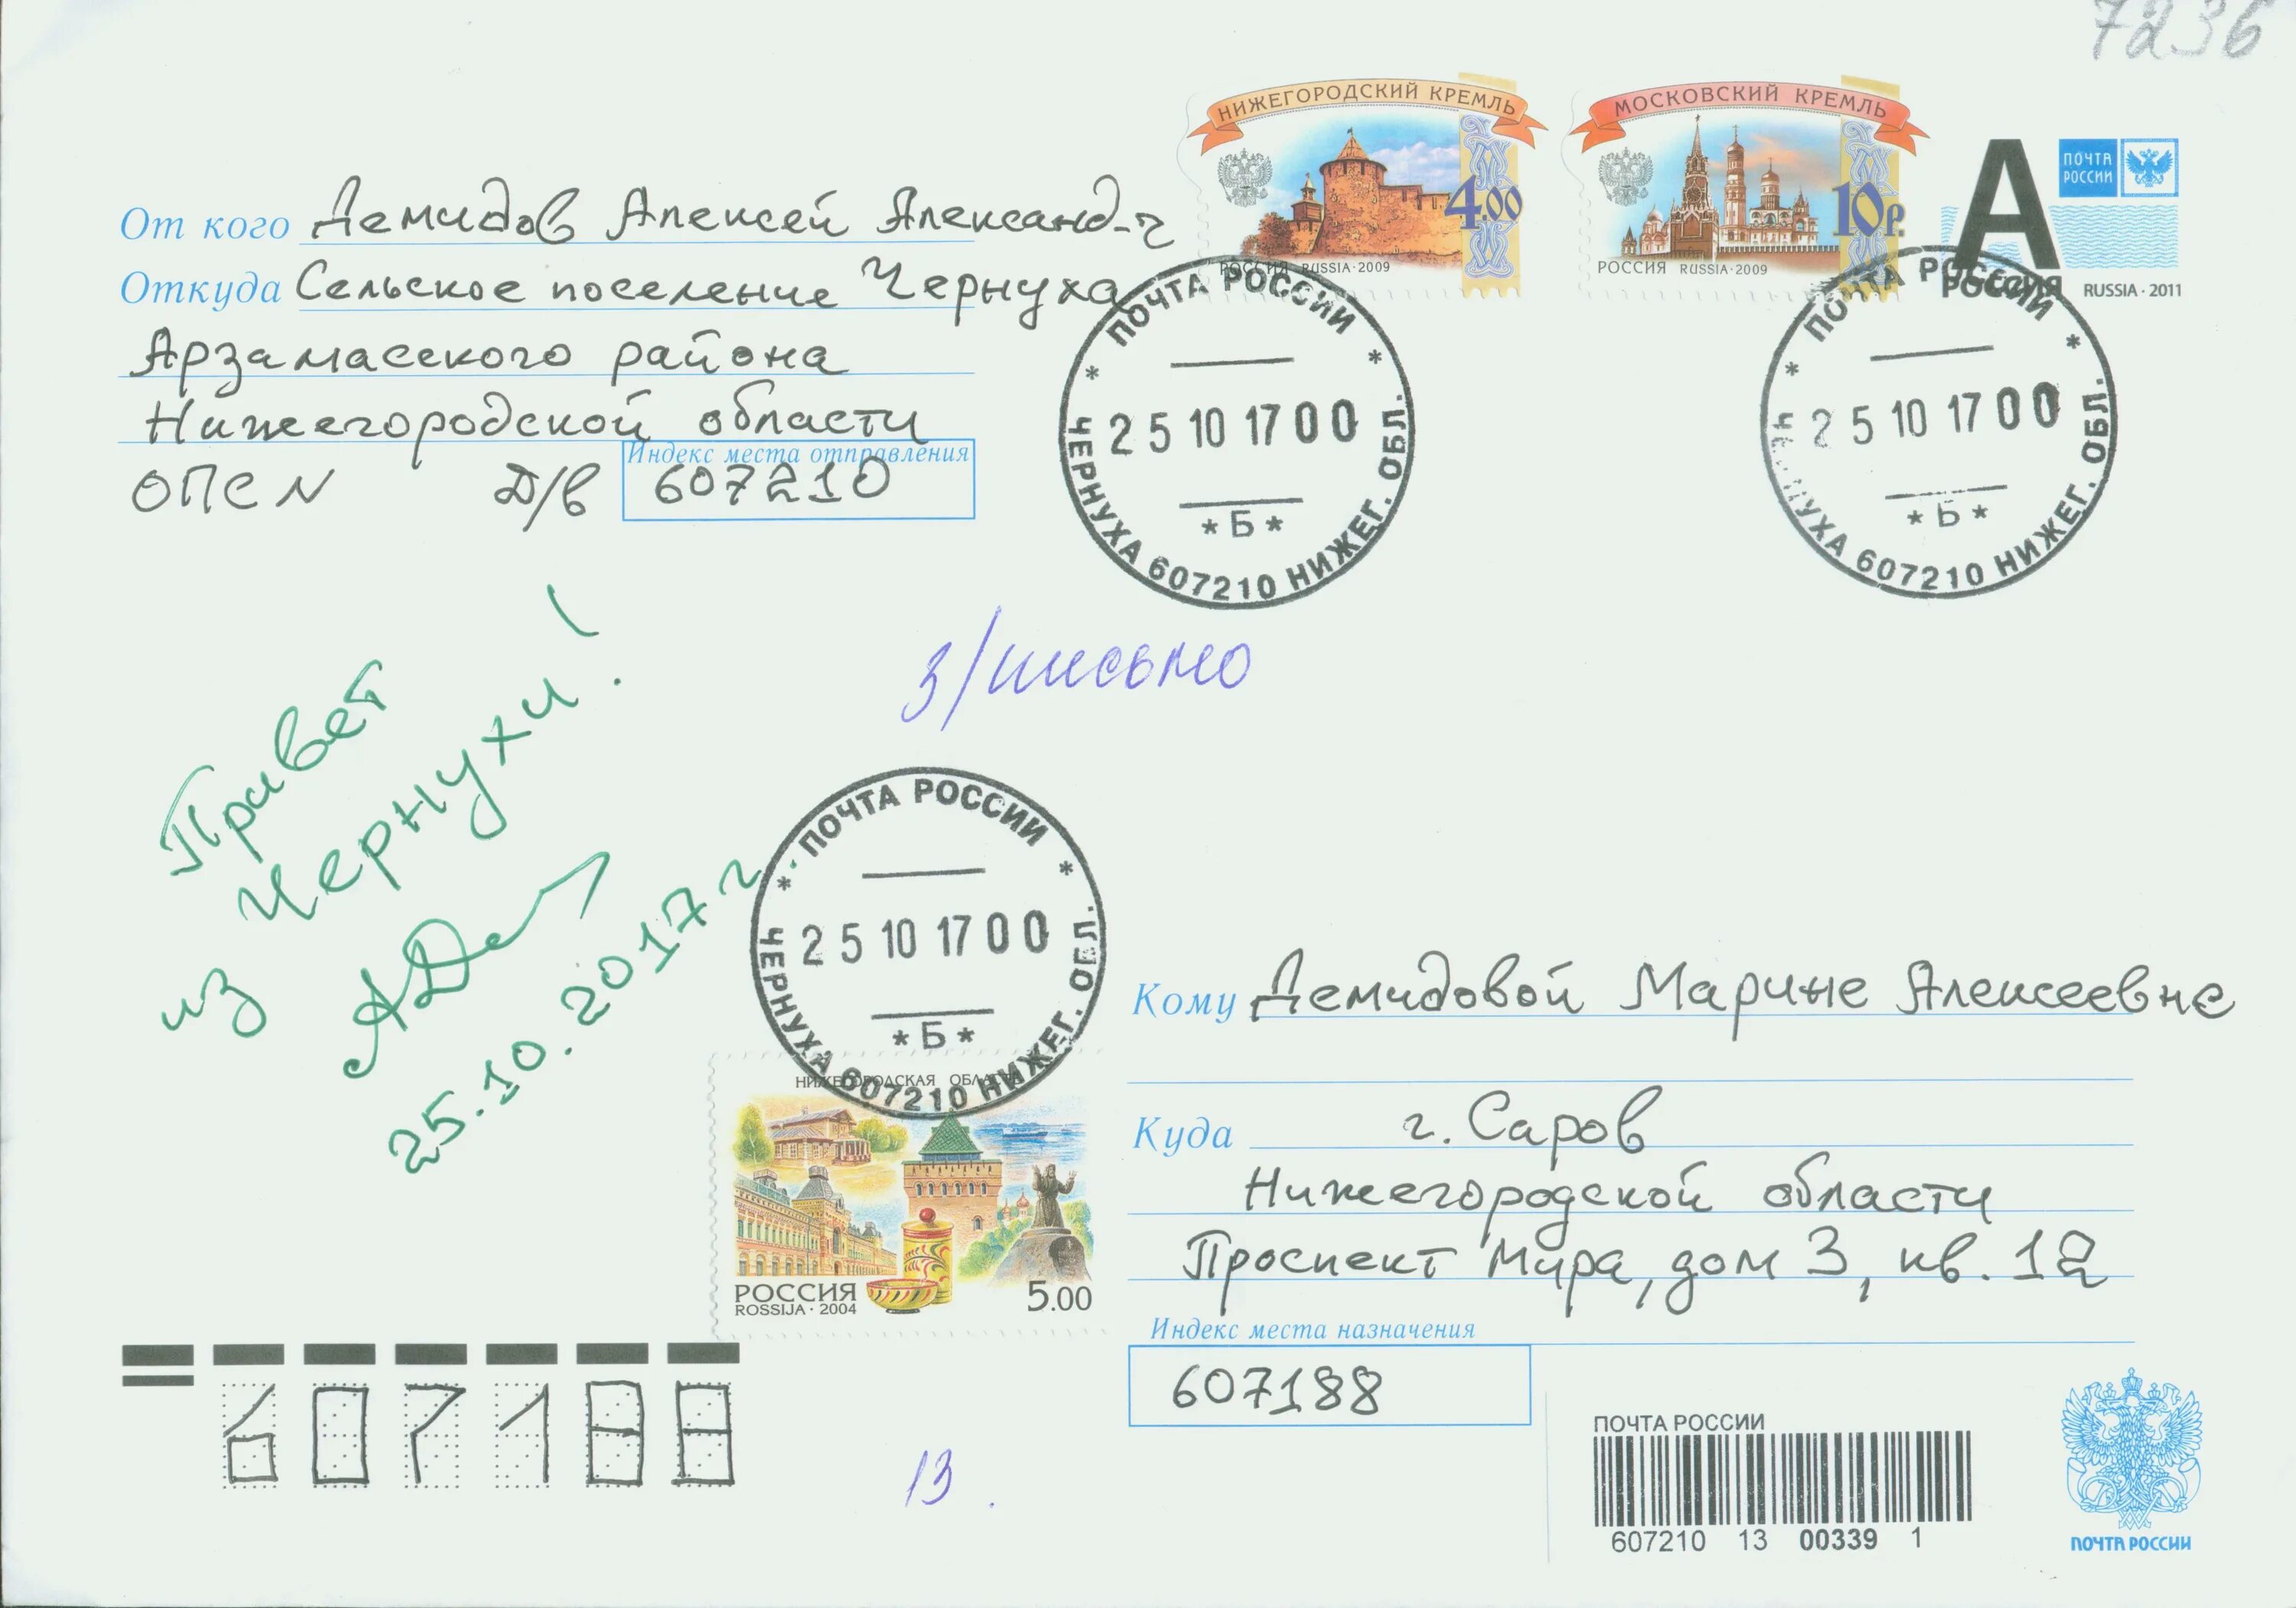 7236
НИЖЕГОРОДСКИЙ КРЕМЛЬ
4.00
РОССИЯ RUSSIA·2009
МОСКОВСКИЙ КРЕМЛЬ
10р.
РОССИЯ RUSSIA·2009
А
ПОЧТА РОССИИ
РОССИЯ
RUSSIA·2011
От кого Демидов Алексей Александ-ч
Откуда Сельское поселение Чернуха
Арзамасского района
Нижегородской области
Индекс места отправления
ОПС N Д/в 607210
* ПОЧТА РОССИИ *
25 10 17 00
* Б *
ЧЕРНУХА 607210 НИЖЕГ. ОБЛ.
* ПОЧТА РОССИИ *
25 10 17 00
* Б *
ЧЕРНУХА 607210 НИЖЕГ. ОБЛ.
З/письмо
Привет
из Чернухи!
25.10.2017г.
* ПОЧТА РОССИИ *
25 10 17 00
* Б *
ЧЕРНУХА 607210 НИЖЕГ. ОБЛ.
НИЖЕГОРОДСКАЯ ОБЛАСТЬ
РОССИЯ
ROSSIJA·2004
5.00
Кому Демидовой Марине Алексеевне
Куда г. Саров
Нижегородской области
Проспект Мира, дом 3, кв. 12
Индекс места назначения
607188
607188
13.
ПОЧТА РОССИИ
607210 13 00339 1
ПОЧТА РОССИИ